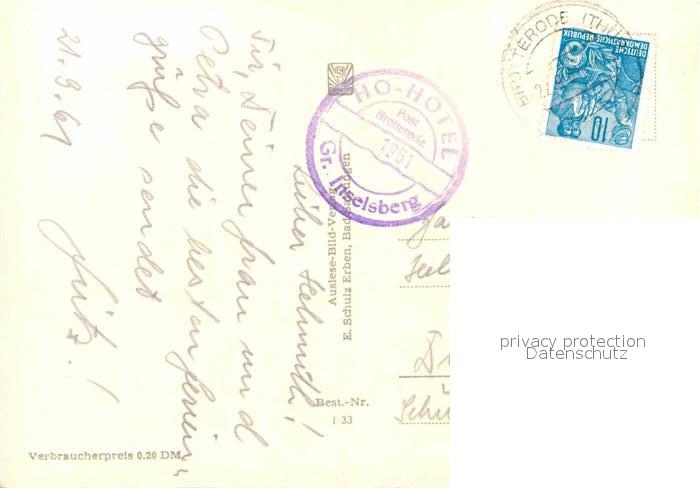 Lieber Helmuth!
Dir, Deiner Frau und
Petra die besten Ferien-
grüße sendet
Fritz!
21.9.61
HO-HOTEL
Post
Brotterode
1961
Gr. Inselsberg
BROTTERODE (TH
DEUTSCHE
DEMOKRATISCHE REPUBLIK
10
Auslese-Bild-Verlag
E. Schulz Erben, Bad Salzungen
Best.-Nr.
I 33
Verbraucherpreis 0.20 DM
privacy protection
Datenschutz